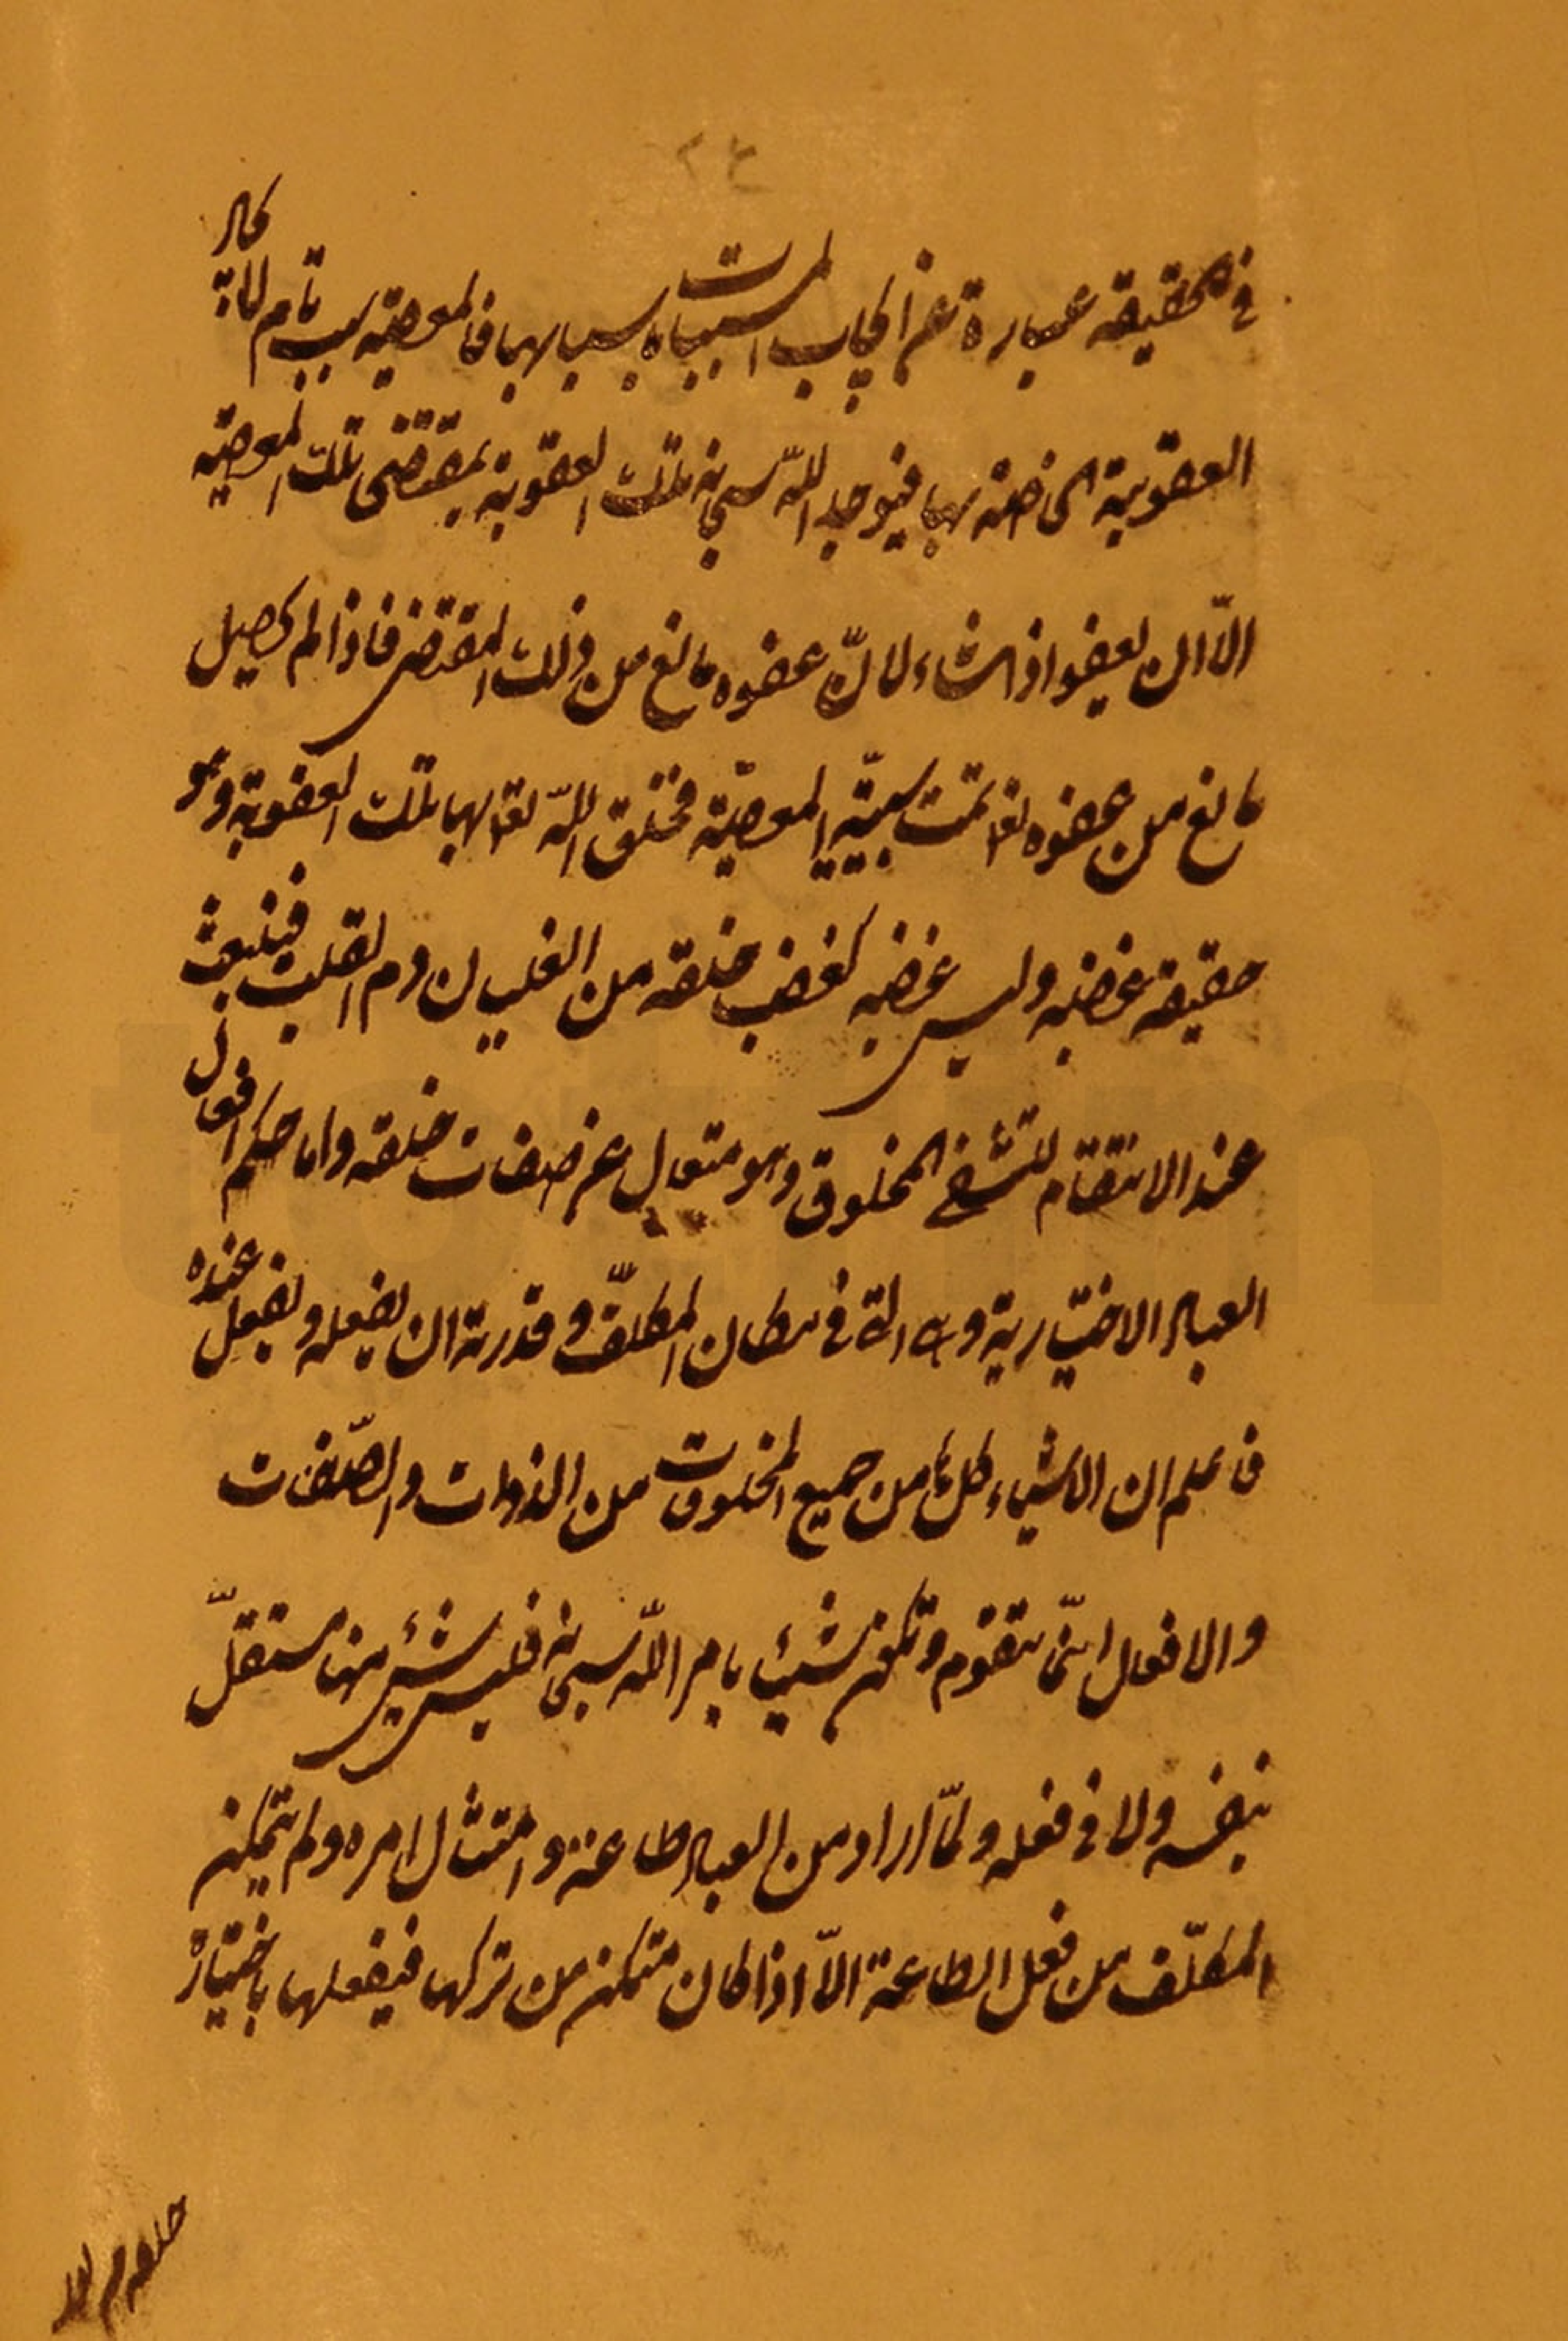 ٢٤
في الحقيقة عبارة عن ايجاب المسببات باسبابها فالمعصية سبب تام لايجاد
العقوبة الخاصة بها فيوجد الله سبحانه تلك العقوبة بمقتضى تلك المعصية
الّا ان يعفو اذا شاء لانّ عفوه مانع من ذلك المقتضى فاذا لم يحصل
مانع من عفوه تعا تمت سببيّة المعصيّة فخلق الله تعا بها تلك العقوبة وهو
حقيقة غضبه وليس غضبه كغضب خلقه من الغليان دم القلب فينبعث
عند الانتقام لتشفي المخلوق وهو متعال عن صفات خلقه واما حكم افعال
العباد الاختيارية في مكان المكلّف و قدرته ان يفعله و يفعل عنده
فاعلم ان الاشياء كلّها من جميع المخلوقات من الذوات والصّفات
والافعال انّما تتقوم وتكون شيئا بامر الله سبحانه فليس شيئ منها مستقلّ
بنفسه ولا في فعله ولمّا اراد من العباد طاعته وامتثال امره ولم يتمكن
المكلّف من فعل الطاعة الّا اذا كان متمكن من تركها فيفعلها باختياره